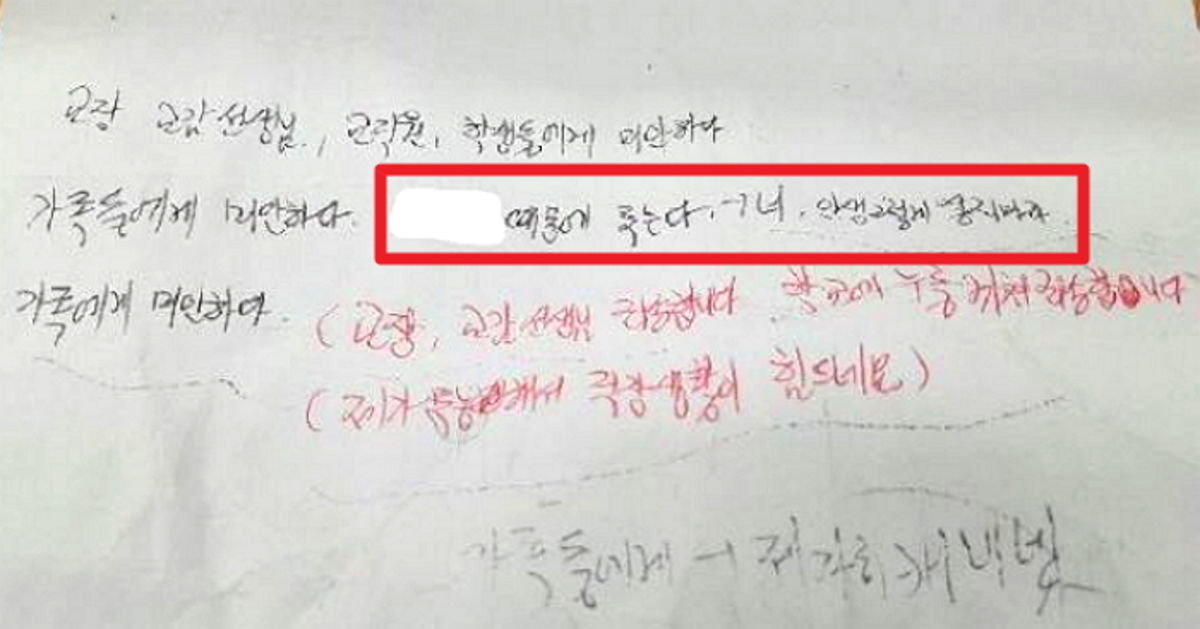 교장 교감선생님, 교직원, 학생들에게 미안하다
가족들에게 미안하다. 때문에 죽는다. 너. 인생그렇게 살지마라.
가족에게 미안하다.
(교장, 교감선생님 죄송합니다. 학교에 누를 끼쳐 죄송합니다
(제가 무능해서 직장생활이 힘드네요)
가족들에게 →